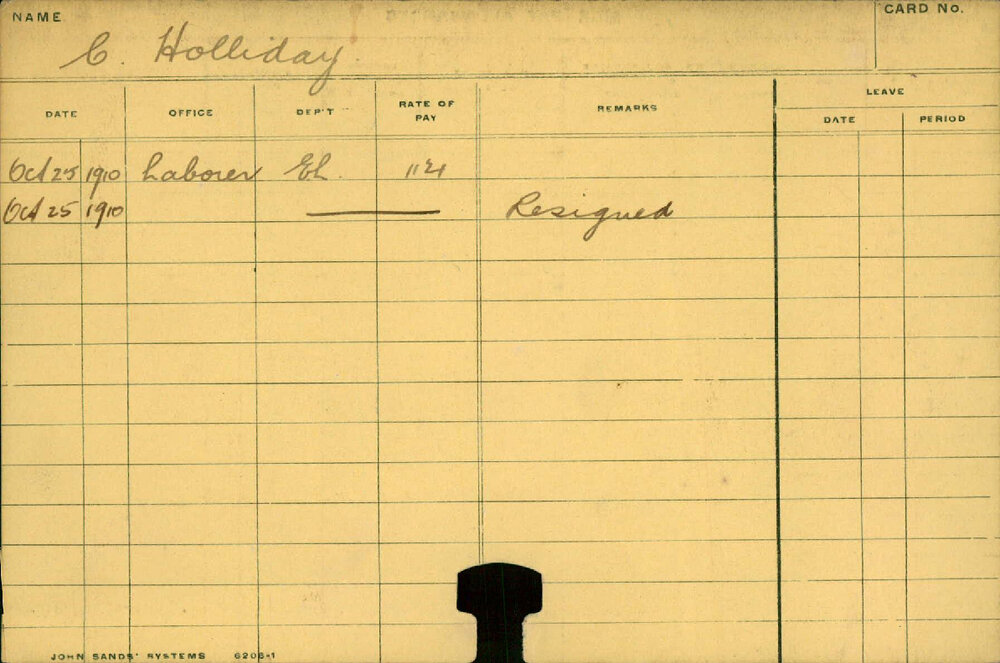 NAME
CARD No.
C. Holliday
LEAVE
DATE OFFICE DEP'T RATE OF PAY REMARKS DATE PERIOD
Oct 25 1910 Laborer El.
Oct 25 1910 Resigned
JOHN SANDS' SYSTEMS 6206-1